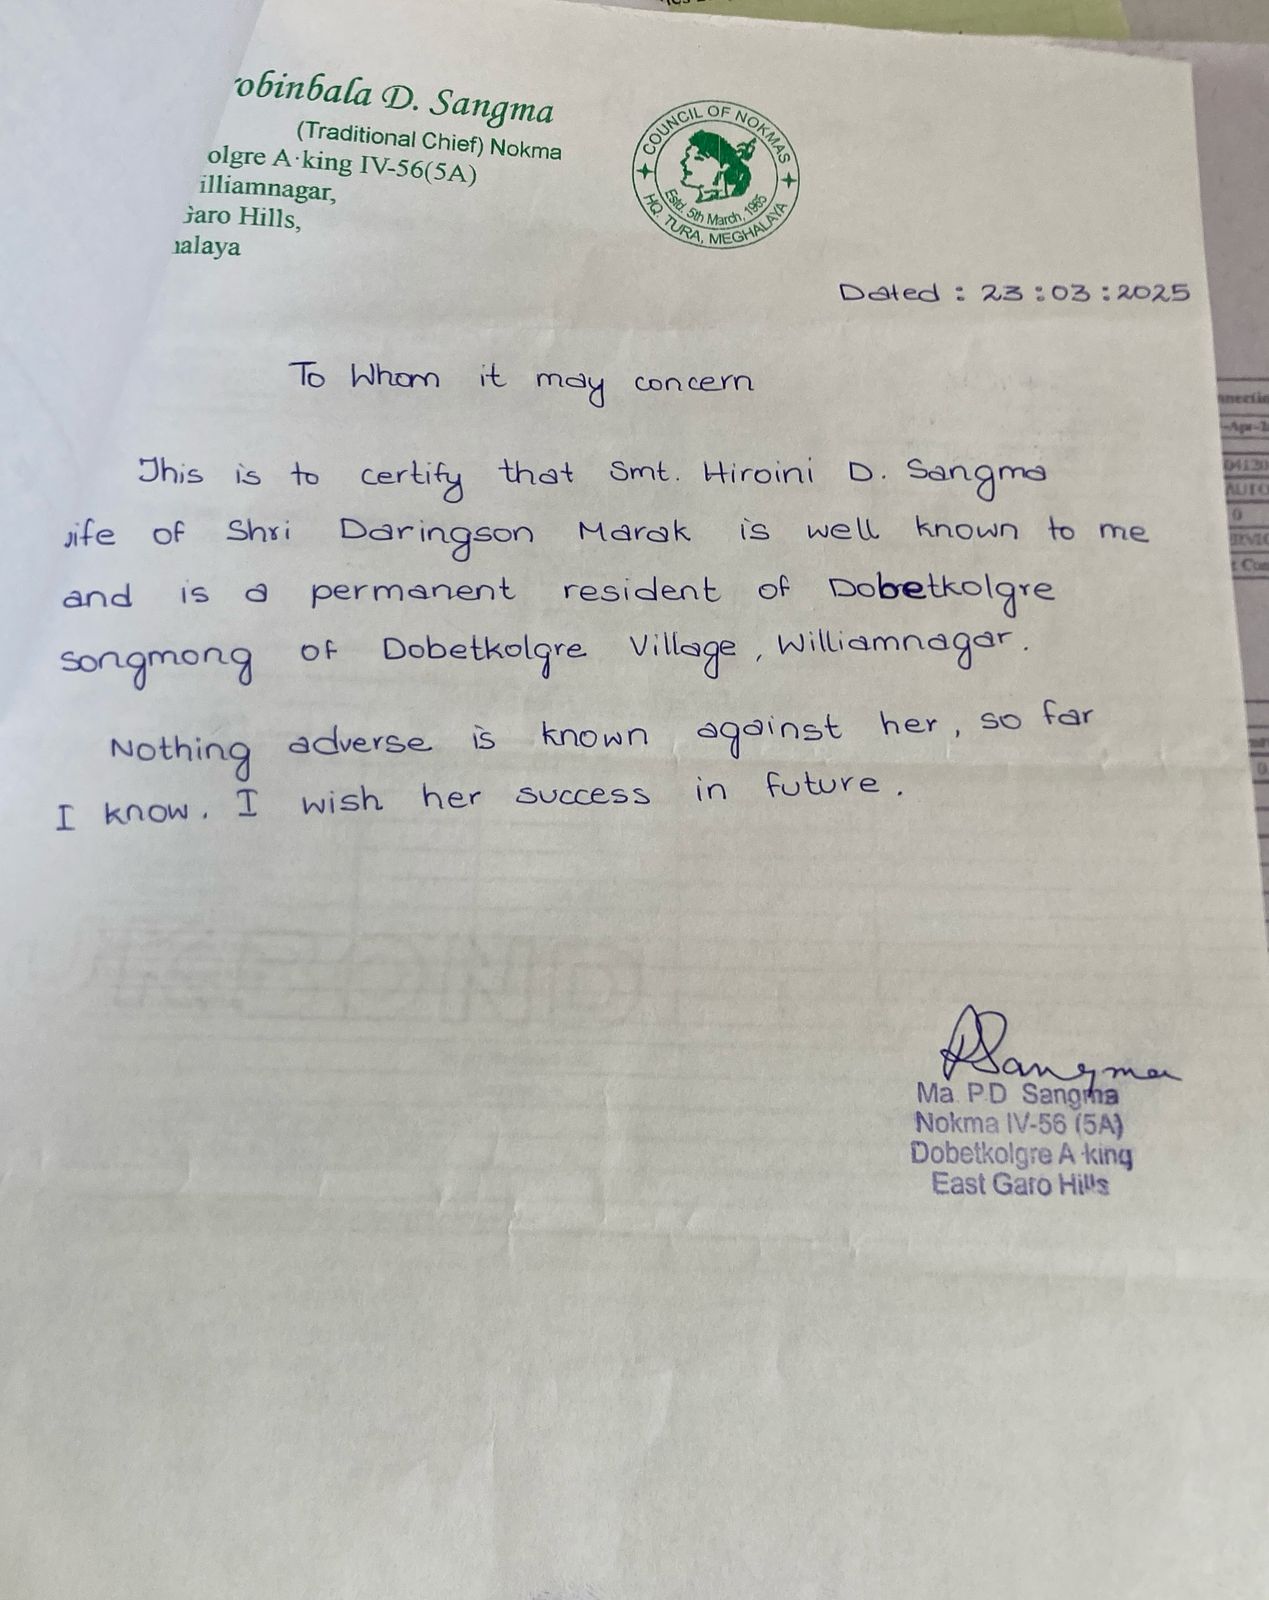 robinbala D. Sangma
(Traditional Chief) Nokma
olgre A·king IV-56(5A)
illiamnagar,
Garo Hills,
halaya
COUNCIL OF NOKMAS
Estd. 5th March, 1985
HQ. TURA, MEGHALAYA
Dated : 23 : 03 : 2025
To Whom it may concern
This is to certify that Smt. Hiroini D. Sangma
wife of Shri Daringson Marak is well known to me
and is a permanent resident of Dobetkolgre
songmong of Dobetkolgre Village, Williamnagar.
Nothing adverse is known against her, so far
I know. I wish her success in future.
PSangma
Ma P.D Sangma
Nokma IV-56 (5A)
Dobetkolgre A·king
East Garo Hills